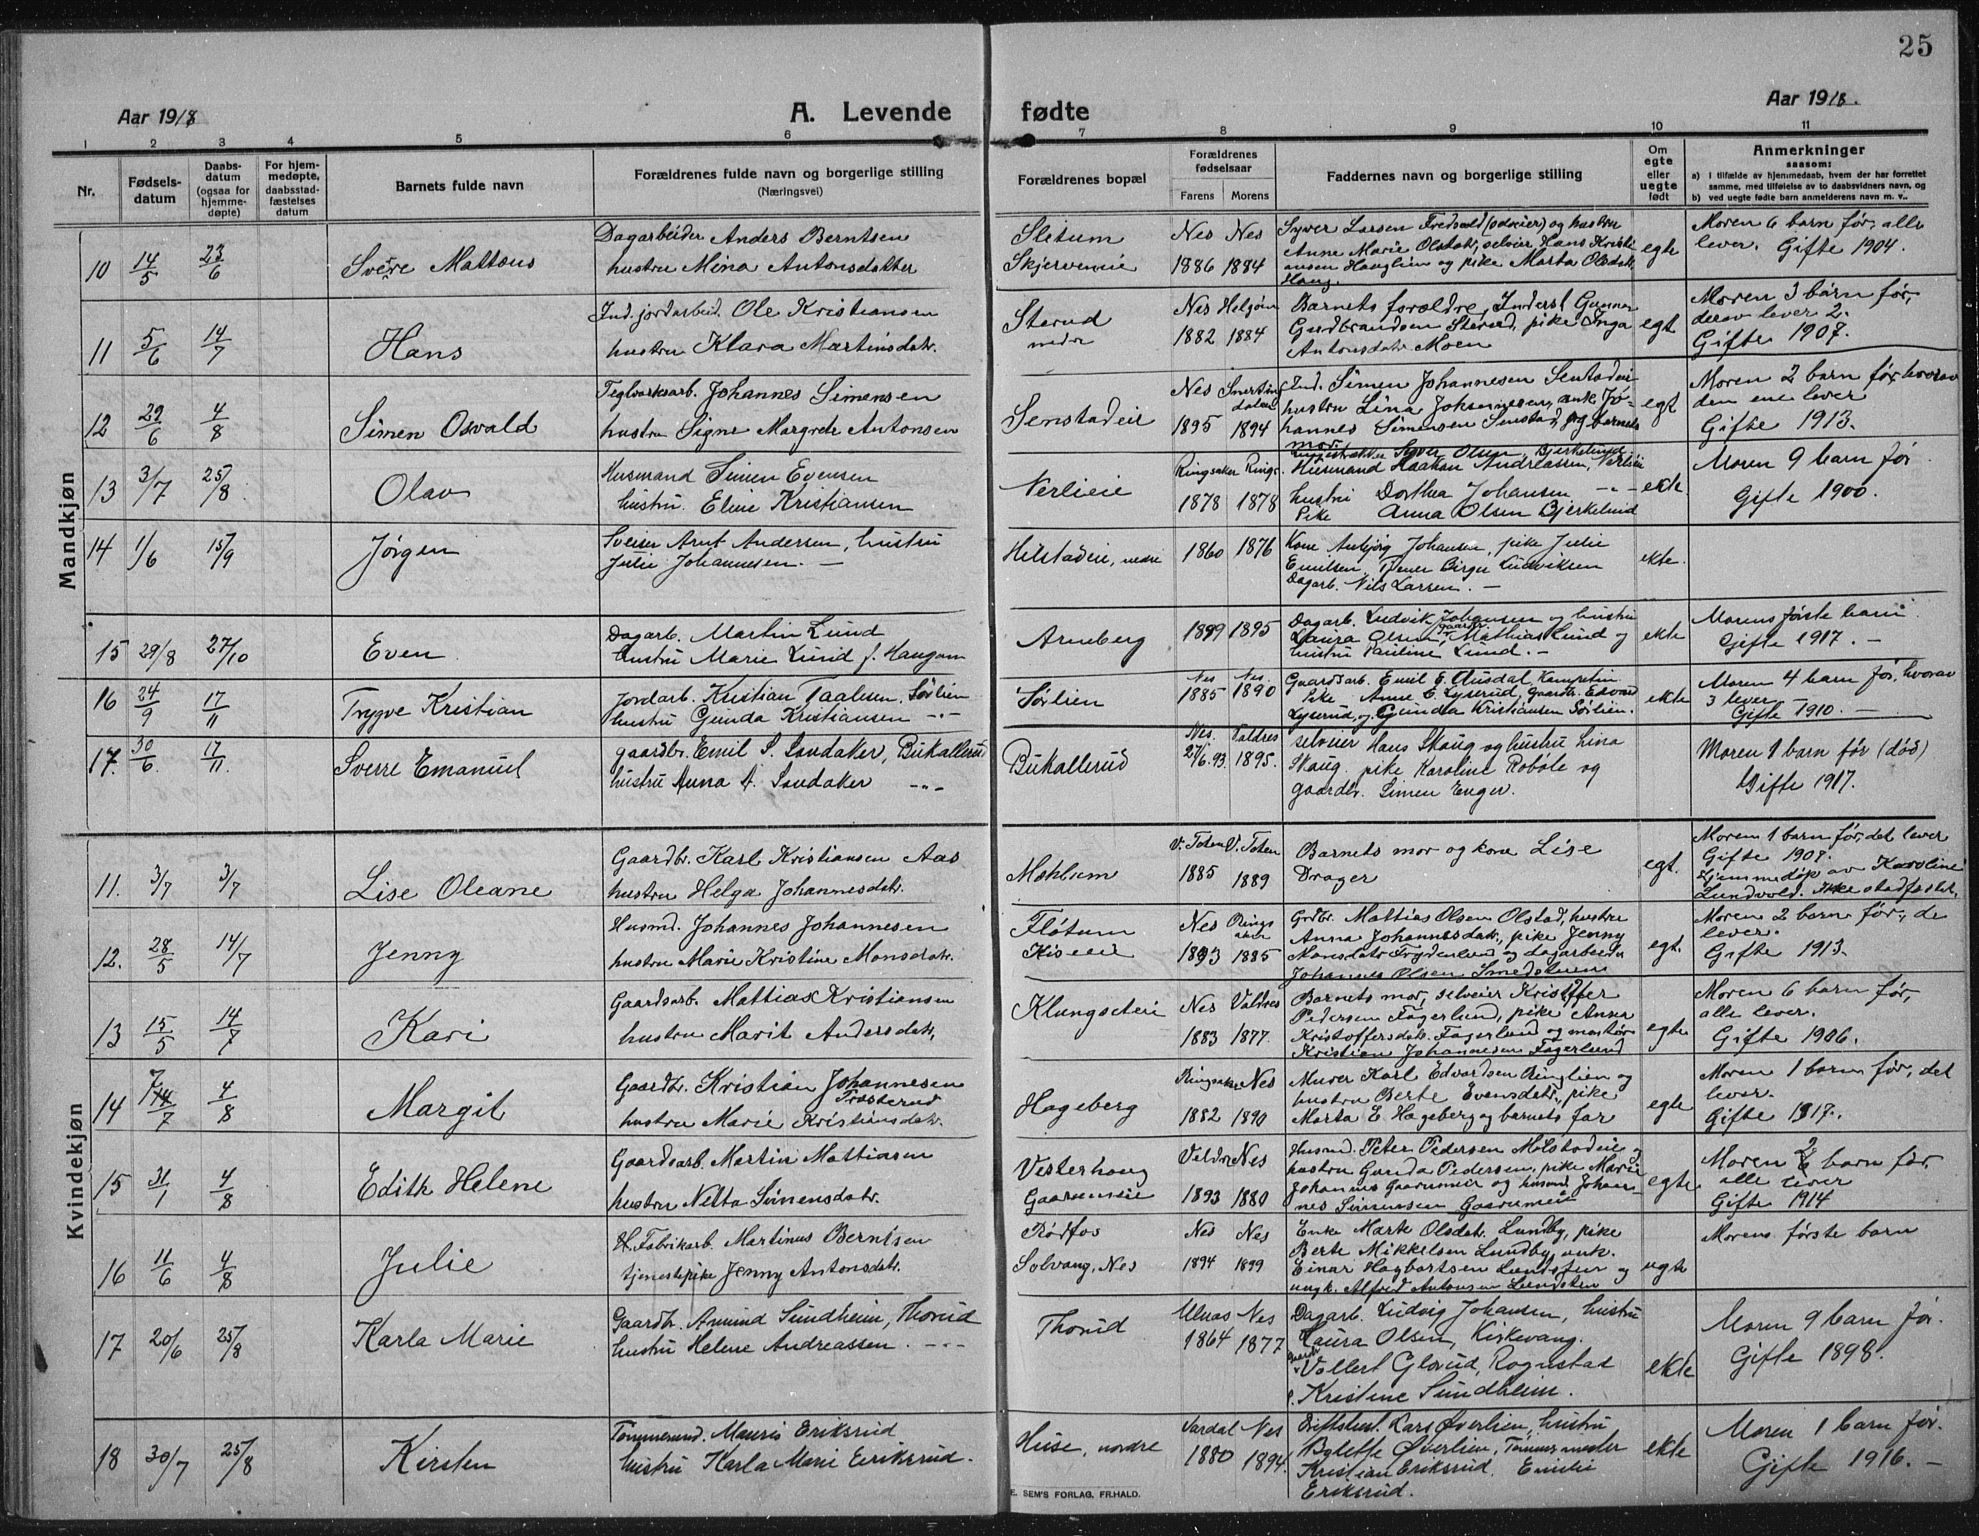 25
Aar 1918
A. Levende fødte
Aar 1918.
1 2 3 4 5 6 7 8 9 10 11
Nr.
Fødsels-
datum
Daabs-
datum
(ogsaa for
hjemme-
døpte)
For hjem-
medøpte,
daabsstad-
fæstelses
datum
Barnets fulde navn
Forældrenes fulde navn og borgerlige stilling
(Næringsvei)
Forældrenes bopæl
Forældrenes
fødselsaar
Farens Morens
Faddernes navn og borgerlige stilling
Om
egte
eller
uegte
født
Anmerkninger
saasom:
a) i tilfælde av hjemmedaab, hvem der har forrettet
samme, med tilføielse av to daabsvidners navn, og
b) ved uegte født barn anmelderens navn m. v..
Mandkjøn
10 14/5 23/6 Sverre Mattæus
Dagarbeider Anders Berntsen
hustru Mina Antonsdatter
Sletum
Skjerveneie
Nes Nes
1886 1884
Syver Larsen Fredvold (selveier) og hustru
Anne Marie Olsdatr, selveier Hans Kristi-
ansen Hauglien og pike Marta Olsdatr
Haug.
egte
Moren 6 barn før, alle
lever. Gifte 1904.
11 5/6 14/7 Hans
Ind. jordarbeid. Ole Kristiansen
hustru Klara Martinsdatr.
Sterud
nedre
Nes Helgøen
1882 1884
Barnets forældre, Inderst Gunnar
Gudbrandsen Sterud, pike Inga
Antonsdatr. Moen
egt
Moren 3 barn før,
derav lever 2.
Gifte 1907.
12 29/6 4/8 Simen Osvald
Teglverksarb. Johannes Simensen
hustru Signe Margrete Antonsen
Senstadeie
Nes Snertin
dalen
1895 1894
Ind. Simen Johannesen Senstadeie
hustru Lina Johannesen, enk. Jo-
hannes Simensen Senstad, og barnets
mor.
egt
Moren 2 barn før, hvorav
den ene lever
Gifte 1913.
13 3/7 25/8 Olav
Husmand Simen Evensen
hustru. Eline Kristiansen
Nerlieie
Ringsaker Rings.
1878 1878
Syver Olsen, Bjerkelund
Husmand Haakon Andreassen, Nerlieie
hustru Dorthea Johansen -"-
Pike Anna Olsen Bjerkelund
ekte
Moren 9 barn før
Gifte 1900.
14 1/6 15/9 Jørgen
Sveiser Arnt Andersen, hustru
Julie Johannesen. —
Hilstadeie, nedre
1860 1876
Kone Anbjørg Johansen, pike Julie
Emilsen, Tjener Birger Ludviksen
Dagarb. Nils Larsen. —
ekte.
15 29/8 27/10 Even
Dagarb. Martin Lund
hustru Marie Lund f. Haugom
Arneberg
1899 1895
Dagarb. Ludvik Johansen og hustru
Laura Olsen, gaardbr. Mathias Lund og
hustru Pauline Lund. —
ekte
Morens første barn
Gifte 1917. —
16 24/9 17/11 Trygve Kristian
Jordarb. Kristian Taalesen, Sørlien
hustru Gunda Kristiansen -"-
Sørlien
Nes Nes.
1885 1890
Gaardsarb. Emil E. Ausdal, Kampetin
Pike Anne E. Lyserud, Gaardbr. Edvard
Lyserud, og Gunda Kristiansen Sørlien.
ekte
Moren 4 barn før, hvorav
3 lever
Gifte 1910. —
17. 30/6 17/11. Sverre Emanuel
gaardbr. Emil S. Sandaker, Bukallerud
hustru Anna A. Sandaker -"-
Bukallerud
Nes. Valdres
27/6.93. 1895.
selveier Hans Skaug og hustru Lina
Skaug. pike Karoline Robøle og
gaardbr. Simen Enger.
Moren 1 barn før (død)
Gifte 1917.
Kvindekjøn
11. 3/7 3/7 Lise Oleane
Gaardbr. Karl Kristiansen Aas
hustru Helga Johannesdatr.
Mæhlum
V. Toten V. Toten
1885 1889
Barnets mor og kone Lise
Drager
egt.
Moren 1 barn før, det lever
Gifte 1907.
Hjemmedøp av Karoline
Lundvold. Ikke stadfæstet.
12. 28/5 14/7 Jenny
Husmd. Johannes Johannesen
hustru Marie Kristine Monsdatr.
Fløtum
Kiseeie
Nes Rings
aker
1893 1885
Grdbr. Mattias Olsen Olstad, hustru
Anna Johannesdatr, pike Jenny
Monsdatr Frydenlund og dagarbeider
Johannes Olsen Smedstuen
egt.
Moren 2 barn før, de
lever.
Gifte 1913.
13 15/5 14/7 Kari
Gaardsarb. Mattias Kristiansen
hustru Marit Andersdatr,
Klungseteie
Nes Valdres
1883 1877.
Barnets mor, selveier Kristoffer
Pedersen Fagerlund, pike Anne
Kristoffersdatr. Fagerlund og montør
Kristian Johannesen Fagerlund
egte
Moren 6 barn før,
alle lever.
Gifte 1906.
14 7/7 4/8 Margit
Gaardbr. Kristian Johannesen
Trosterud
hustru Marie Kristiansdatr.
Hageberg
Ringsaker Nes
1882 1890
Murer Karl Edvardsen Ringlien og
hustru Berte Evensdatr, pike
Marta E. Hageberg og barnets far
egte
Moren 1 barn før, det
lever.
Gifte 1917.
15 31/1 4/8 Edith Helene
Gaardsarb. Martin Mattiasen
hustru Netta Simensdatr.
Vesterhaug
Gaarumeie
Valdres Nes
1893 1880
Husmd. Peter Pedersen Molstadeie og
hustru Gunda Pedersen, pike Marie
Johannes Gaarumeie og husmd Johan-
nes Simensen Gaarumeie
egte
Moren 2 barn før,
alle lever
Gifte 1914
16 11/6 4/8 Julie
Fabrikarb. Martinus Berntsen
tjenestepike Jenny Antonsdatr.
Rødfos
Solvang, Nes
Nes Nes
1894 1899
Enke Marte Olsdatr. Lundby, pike
Berte Mikkelsen Lundby, unk.
Einar Hagbartsen Lundstein og
ungk. Alfred Antonsen Lundsten
ugte
Morens første barn
17 20/6 25/8 Karla Marie
Gaardbr. Amund Sundheim, Thorud
hustru Helene Andreassen. -"-
Thorud
Ulnas Nes
1864 1877
Dagarb. Ludvig Johansen, hustru
Laura Olsen, Kirkevang.
Vollert Glorud, Rognstad
Kristine Sundheim.
ekte
Moren 9 barn før.
Gifte 1898.
18 30/7 25/8 Kirsten
Tømmermd. Mauris Eriksrud
hustru Karla Marie Eriksrud.
Huse, nordre
Vardal Nes
1880 1894.
Lars Øverlien, hustru
Øverlien, Tømmermester
Kristian Eriksrud. Emilie
Eriksrud.
ekte
Moren 1 barn før.
Gifte 1916. —
E. SEM'S FORLAG, FR.HALD.